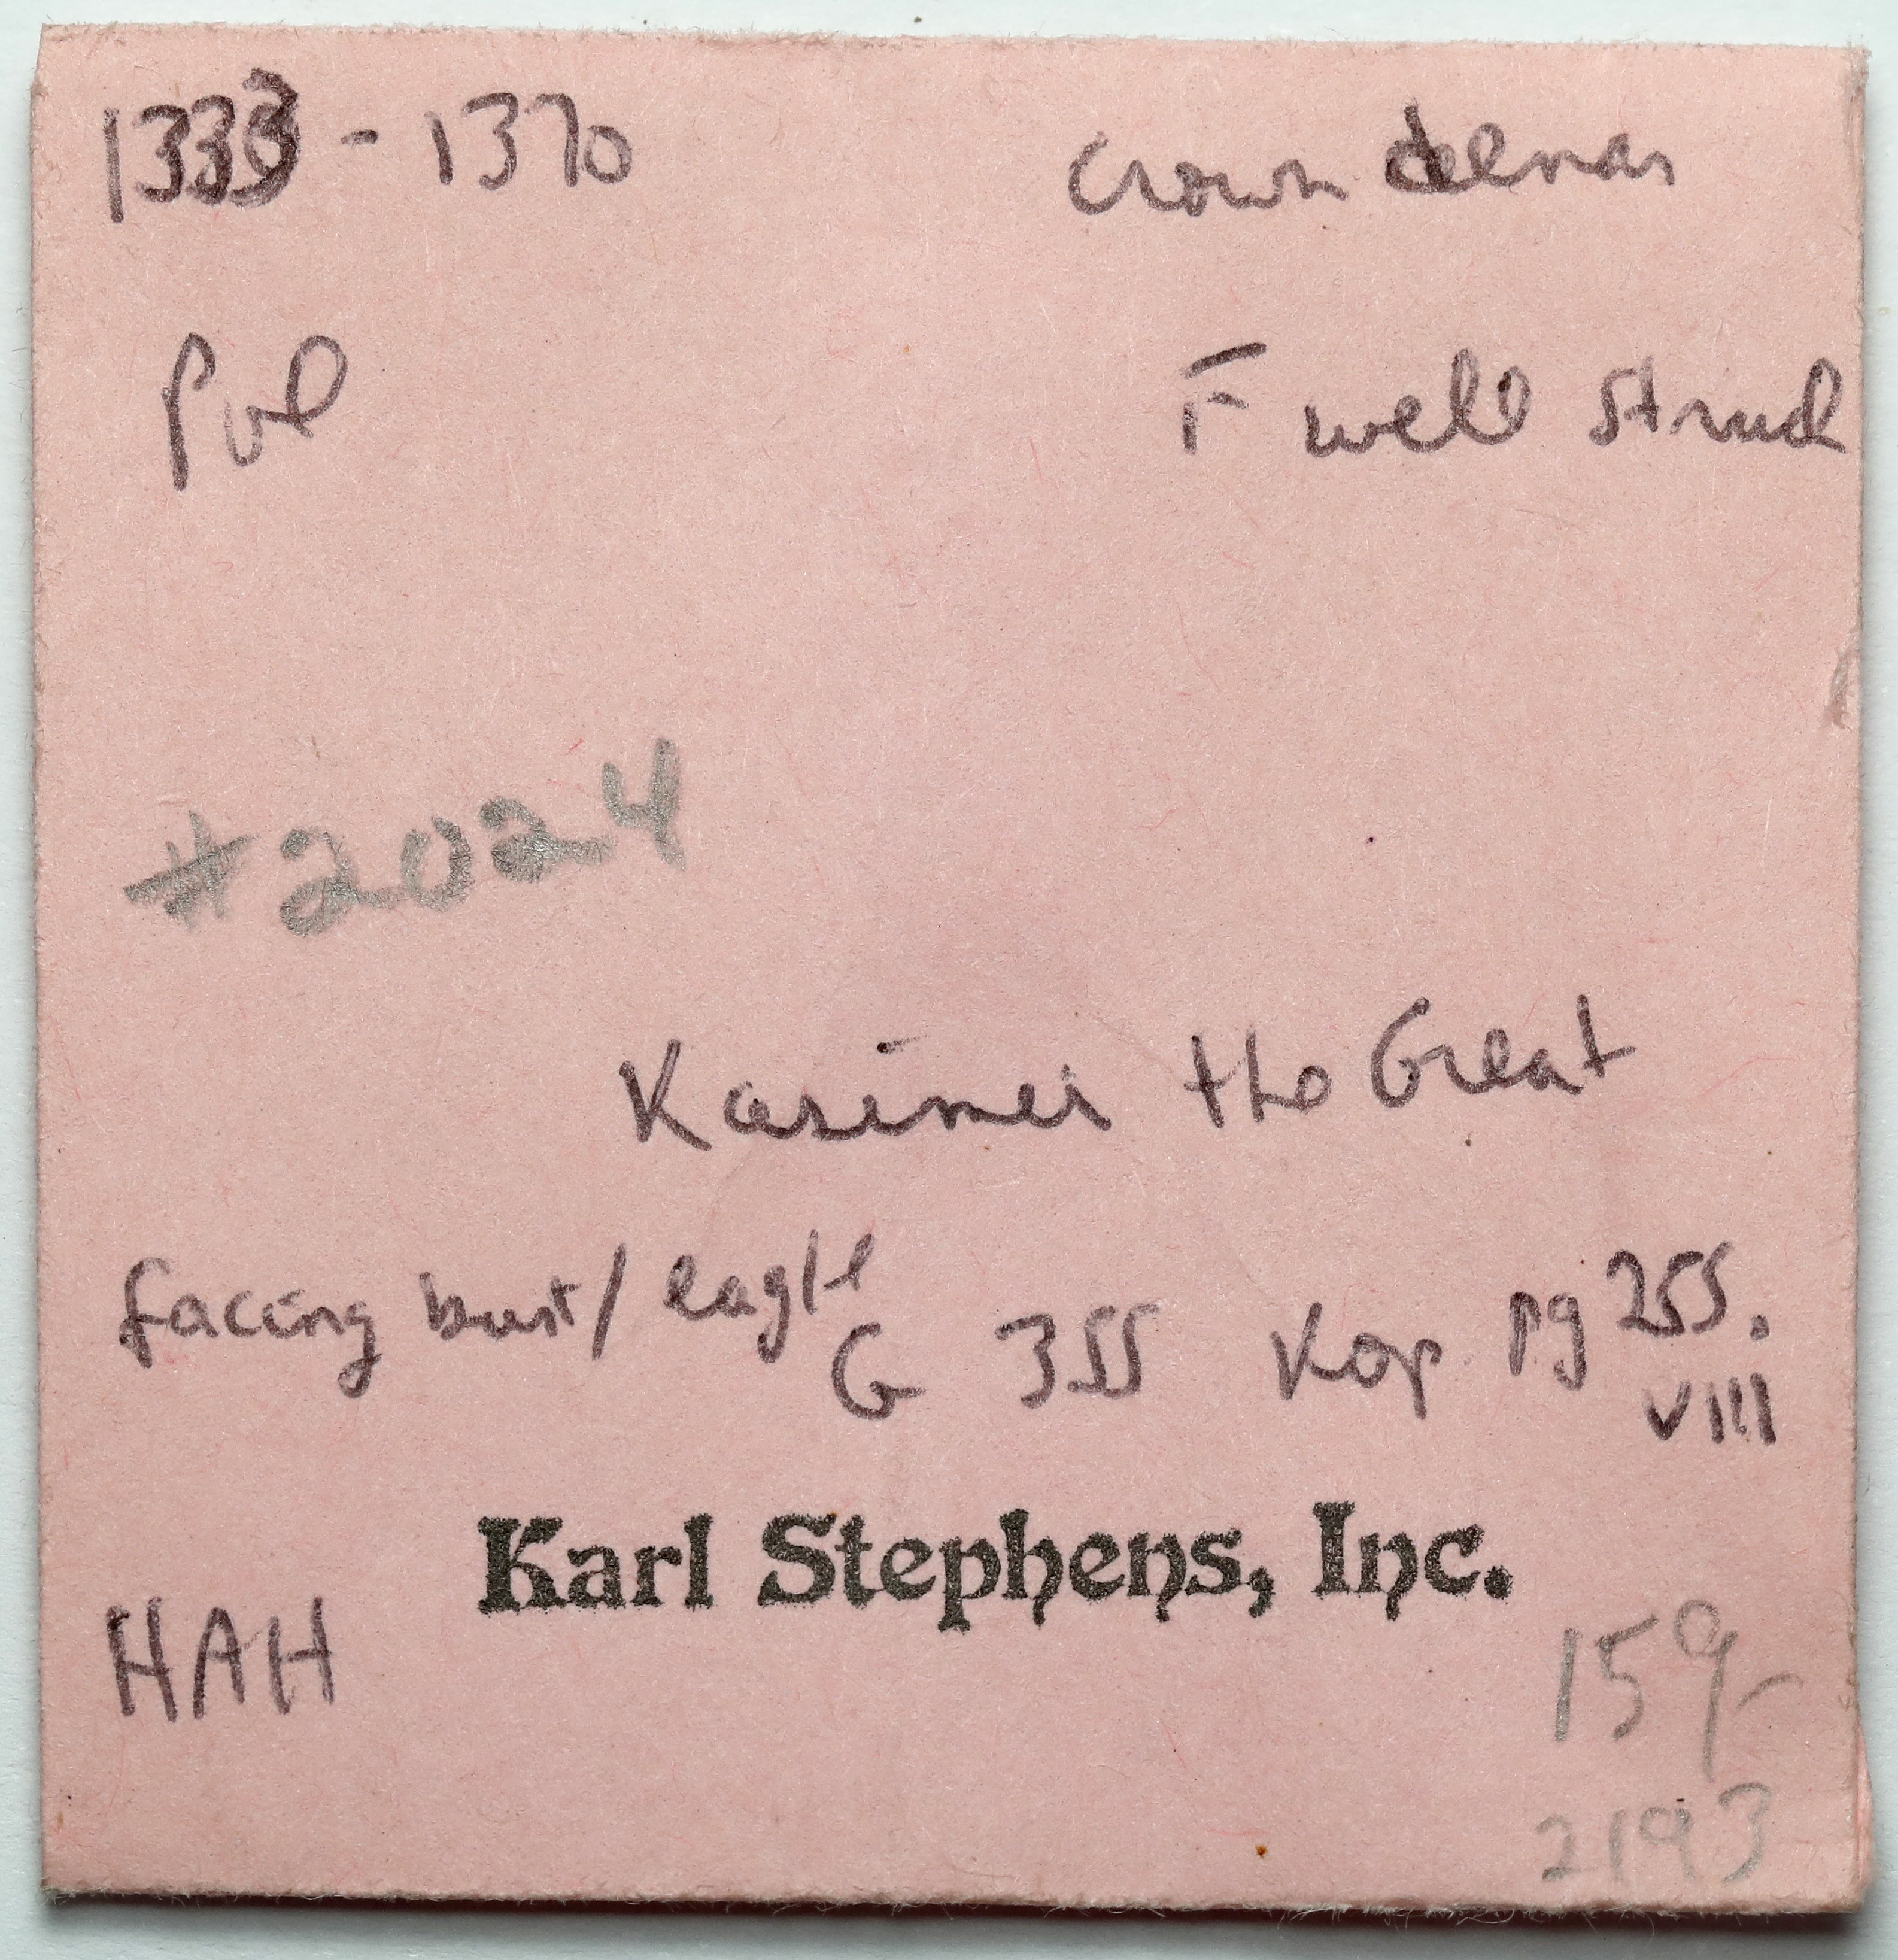 1333 - 1370 Crown denar
Pol F well struck
#2024
Kasimir the Great
facing bust/ eagle
G 355 Kop pg 255.
VIII
Karl Stephens, Inc.
HAH
159-
2193